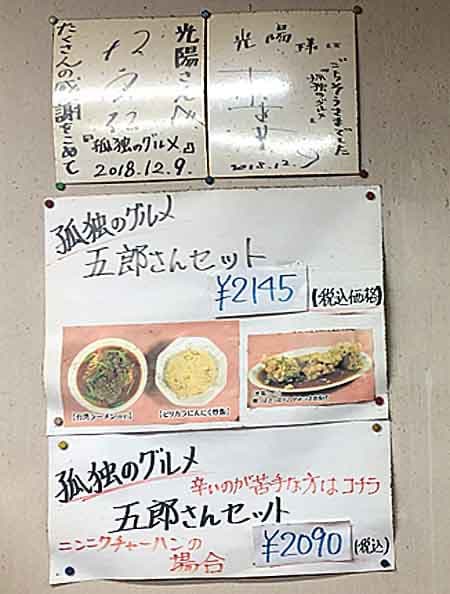 光陽さんへ
たくさんの感謝をこめて
『孤独のグルメ』
2018.12.9.
光陽 様江
ごちそうさまでした
『孤独のグルメ』
2018.12.
孤独のグルメ
五郎さんセット
¥2145
(税込価格)
【台湾ラーメン
【ピリカラにんにく炒飯】
孤独のグルメ
辛いのが苦手な方はコチラ
五郎さんセット
ニンニクチャーハンの
場合
¥2090
(税込)